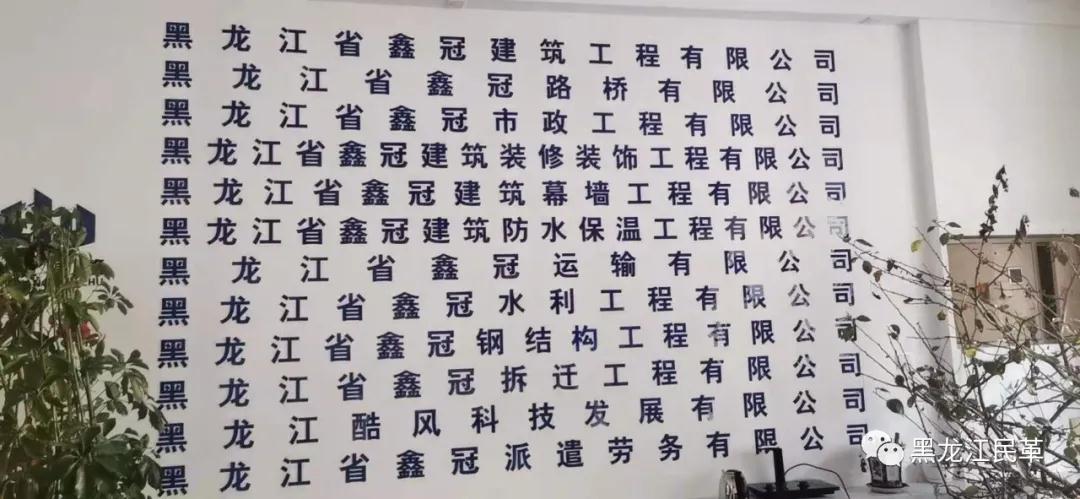 黑龙江省鑫冠建筑工程有限公司
黑龙江省鑫冠路桥有限公司
黑龙江省鑫冠市政工程有限公司
黑龙江省鑫冠建筑装修装饰工程有限公司
黑龙江省鑫冠建筑幕墙工程有限公司
黑龙江省鑫冠建筑防水保温工程有限公司
黑龙江省鑫冠运输有限公司
黑龙江省鑫冠水利工程有限公司
黑龙江省鑫冠钢结构工程有限公司
黑龙江省鑫冠拆迁工程有限公司
黑龙江酷风科技发展有限公司
黑龙江省鑫冠派遣劳务有限公司
黑龙江民革